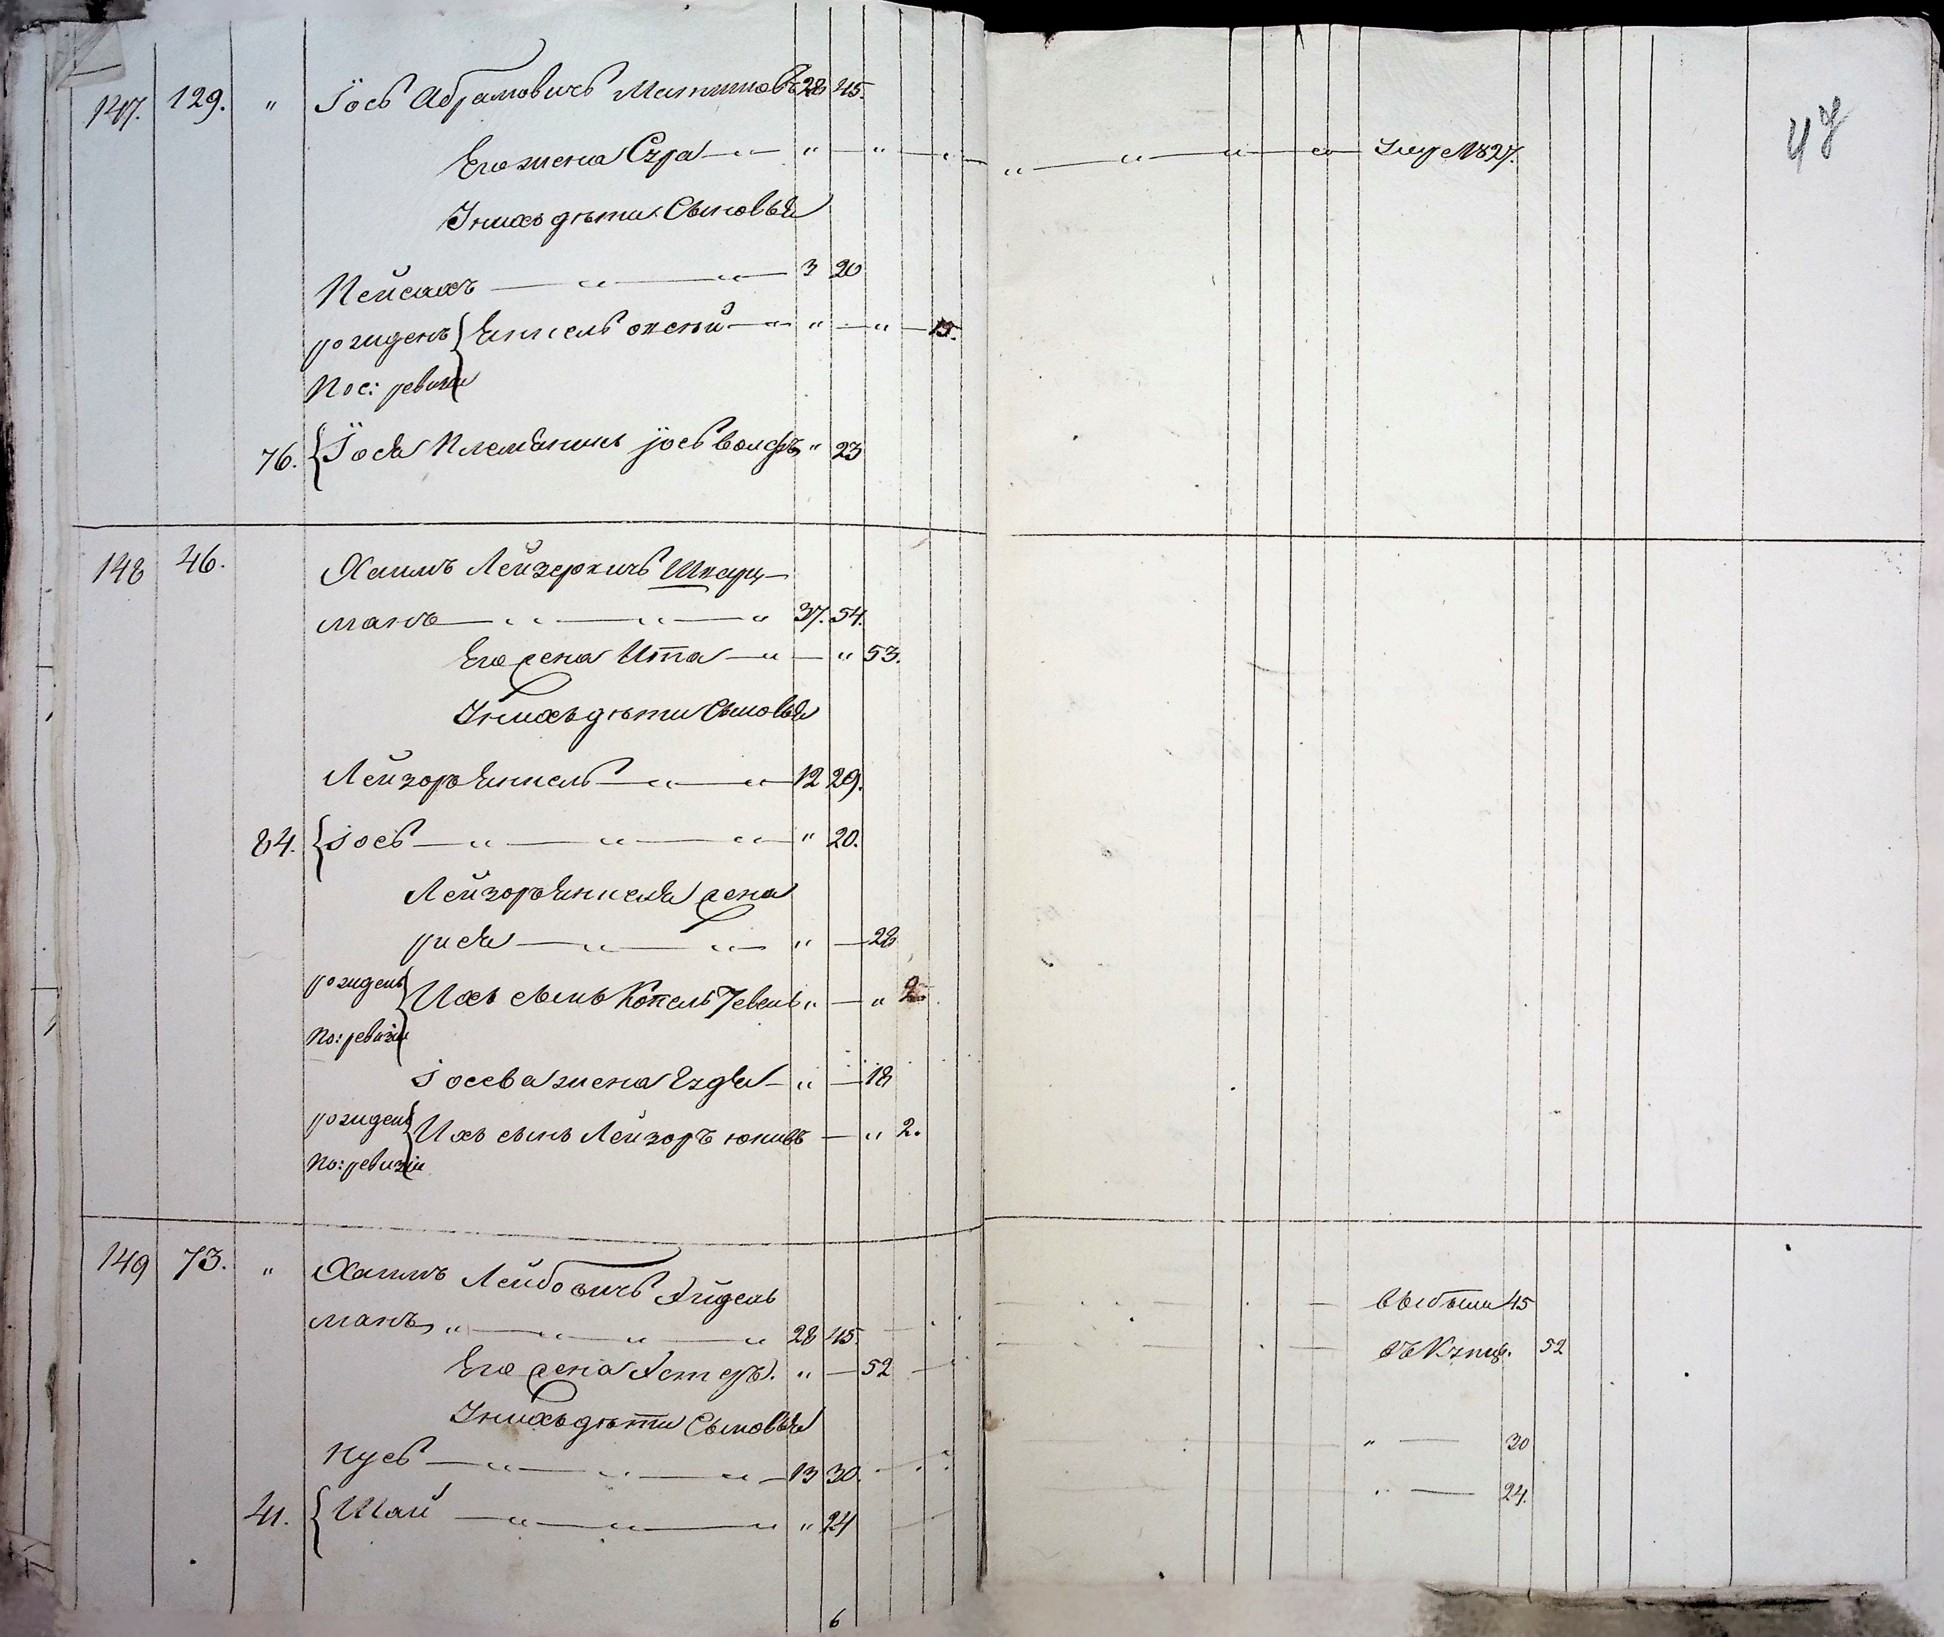 147. 129. " Іось Абрамовичъ 28 45.
Его жена Сура — " — " — " — " — " — " — " — Умер 1827.
У нихъ дѣти Сыновья
Пейсахъ — " — " — 3 20
рожденъ Янкель — " — " — " — 15.
Пос: ревизіи
76. Іося Племянникъ Іось Волфъ " 23
148 46. Хаимъ Лейзеровичъ Шварц-
манъ — " — " — " 37. 54.
Его жена Ита — " — " 53.
У нихъ дѣти Сыновья
Лейзоръ Янкель — " — " — 12 29.
84. Іось — " — " — " — " 20.
Лейзоръ Янкеля жена
рися — " — " — " — 28
рожденъ Ихъ сынъ Копель " — " 2.
По: ревизіи
Іосева жена — " — 18
рожденъ Ихъ сынъ Лейзоръ — " 2.
По: ревизіи
149 73. " Хаимъ Лейбовичъ Айдель
манъ " — " — " — " 28 45. — выбыли 45
Его жена Естеръ. " — 52 — въ Купц. 52
У нихъ дѣти Сыновья
Нусъ — " — " — " — 13 30. — " — 30
41. Шай — " — " — " " 24 — " — 24.
6